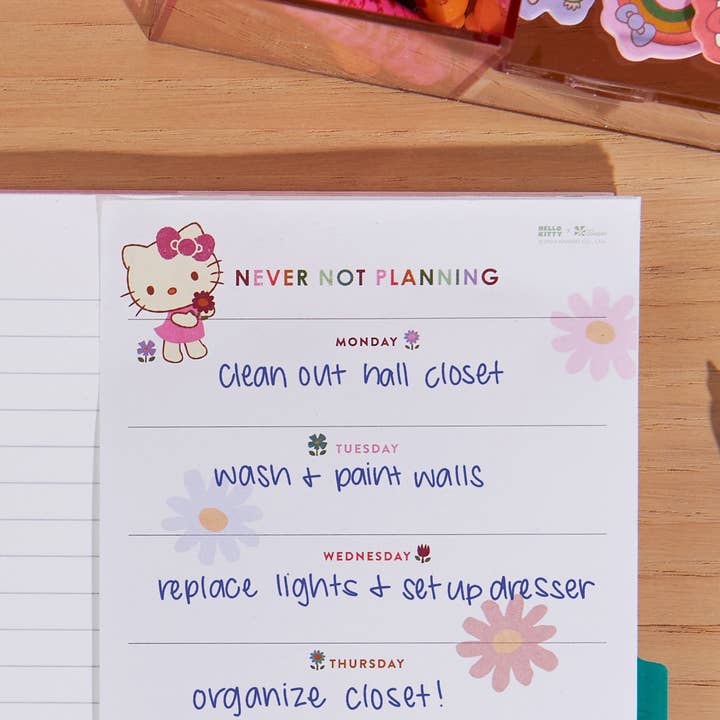 HELLO KITTY
NEVER NOT PLANNING
MONDAY
clean out hall closet
TUESDAY
wash + paint walls
WEDNESDAY
replace lights + set up dresser
THURSDAY
organize closet!